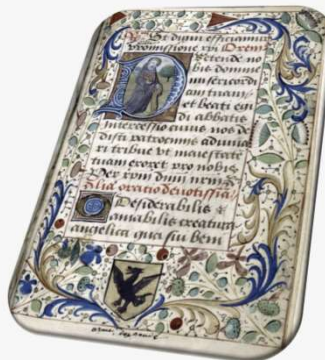 Ut digni efficiamur
promissione xpi Orem
Ostende no
bis domine
misericordi
am tuam
et beati egi
dii abbatis
intercessio cuius nos de
disti patrocinis adiuua
ri tribue vt maiestate
tuam exoret pro nobis
Per xpm dnm nrm
Alia oratio deuotissia
O Desiderabilis &
amabilis creatura
angelica qua sui bem